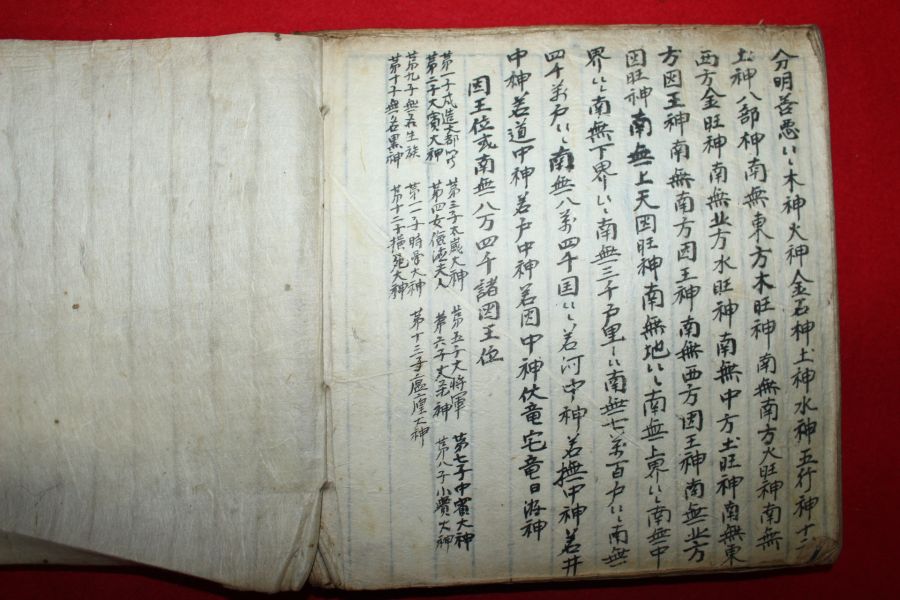 分明善悪〻木神火神金石神土神水神五行神十二
土神八部神南無東方木旺神南無南方火旺神南無
西方金旺神南無北方水旺神南無中方土旺神南無東
方因王神南無南方因王神南無西方因王神南無北方
因旺神南無上天因旺神南無地〻南無上界〻南無中
界〻南無下界〻南無三千戶里〻南無七萬百戶〻南無
四千萬戶〻南無八萬四千国〻若河中神若撫中神若井
中神若道中神若戶中神若因中神伏竜宅竜日游神
因王位或南無八万四千諸因王位
第一子成造大都 第三子太歲大神 第五子大将軍 第七子中賓大神
第二子大賓大神 第四女夫人 第六子大神 第八子小賓大神
第九子無名生族 第十一子時大神 第十三子大神
第十子無名黑神 第十二子橫大神